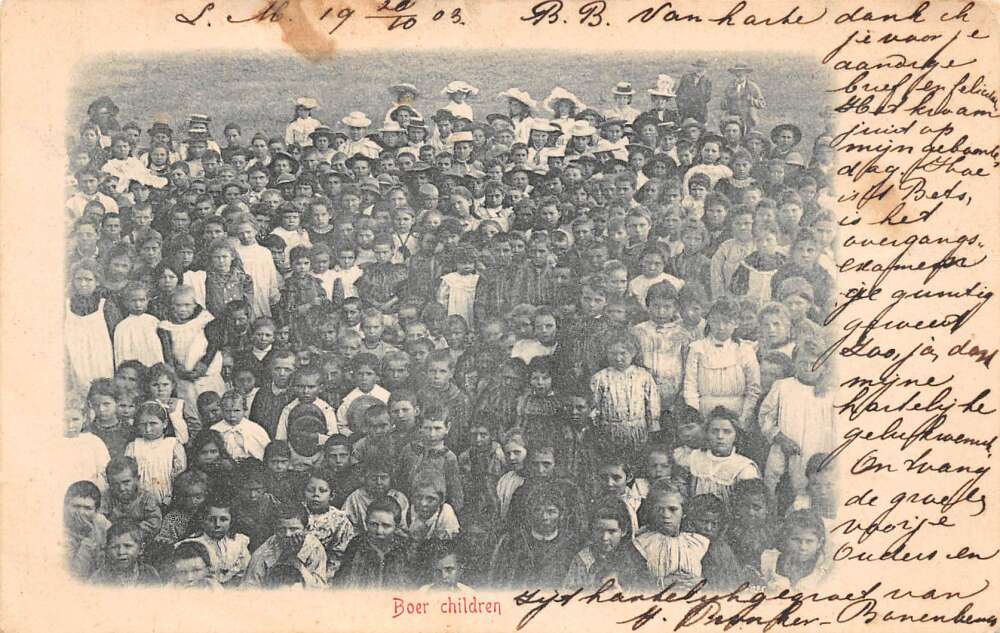 L. M. 19 20/10 03. B. B. Van harte dank ik
je voor je
aardige
brief en felicit.
Het kwam
juist op
mijn geboorte
dag. Hoe
is't Bets,
is het
overgangs-
examen
je gunstig
geweest
Zoo, ja, dan
mijne
hartelijke
gelukwensch.
Ontvang
de groeten
voor je
Ouders en
zijt hartelijk gegroet van
Boer children
H.